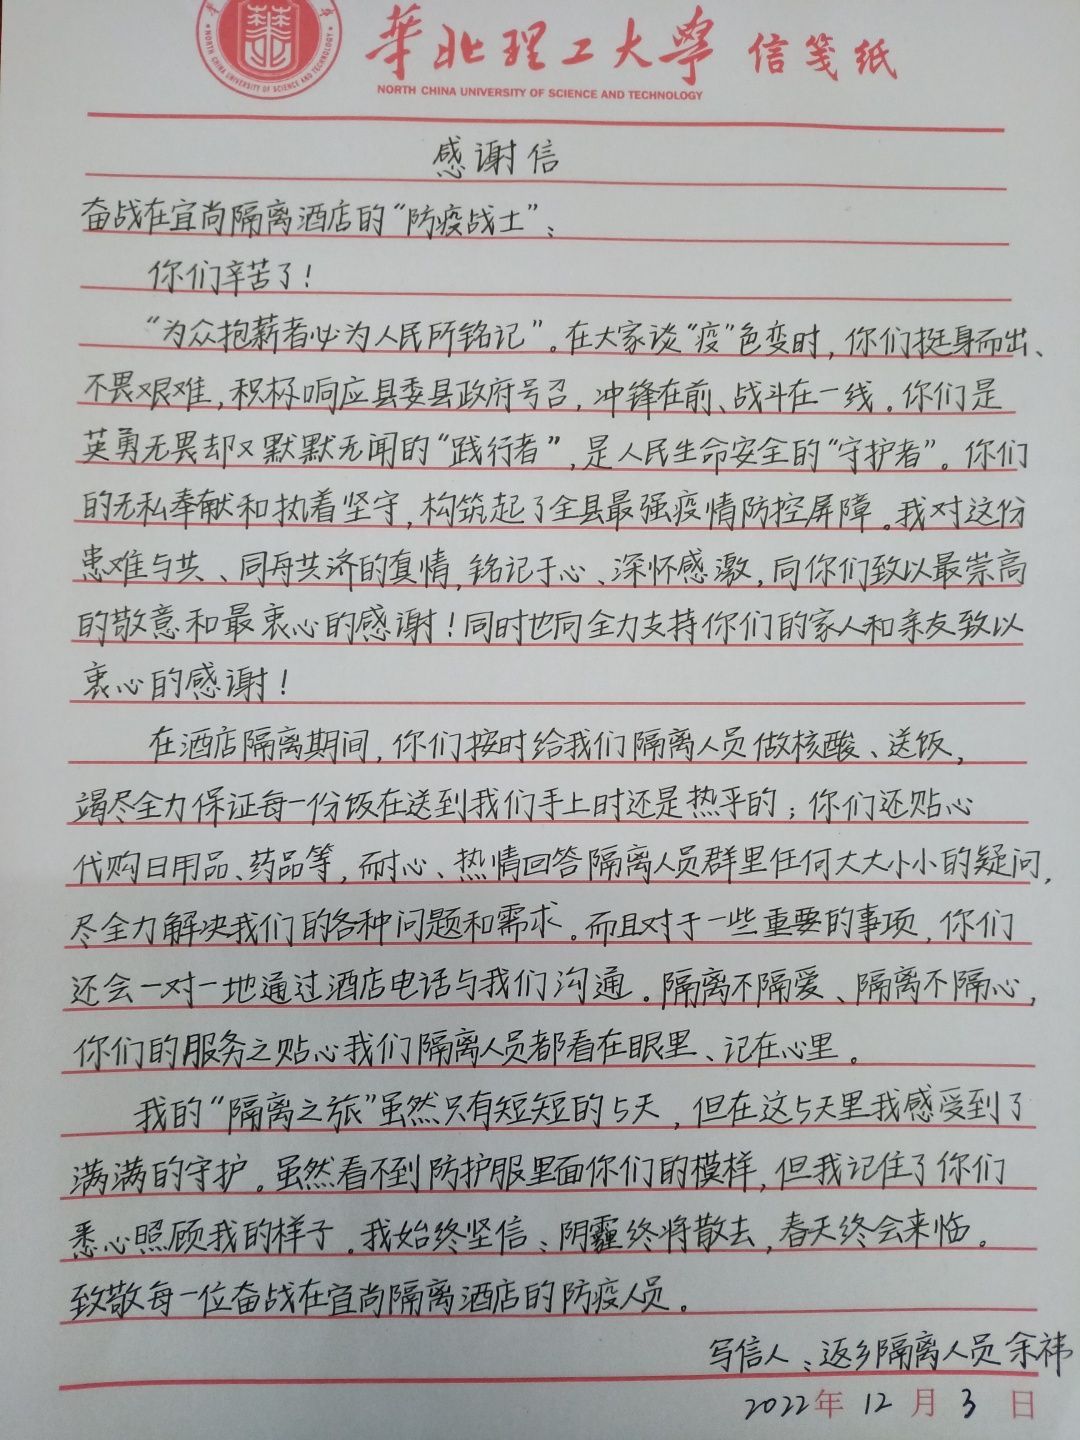 華北理工大學 信笺纸
NORTH CHINA UNIVERSITY OF SCIENCE AND TECHNOLOGY
NORTH CHINA UNIVERSITY OF SCIENCE AND TECHNOLOGY
感谢信
奋战在宜尚隔离酒店的“防疫战士”：
你们辛苦了！
“为众抱薪者必为人民所铭记”。在大家谈“疫”色变时，你们挺身而出、
不畏艰难，积极响应县委县政府号召，冲锋在前、战斗在一线。你们是
英勇无畏却又默默无闻的“践行者”，是人民生命安全的“守护者”。你们
的无私奉献和执着坚守，构筑起了全县最强疫情防控屏障。我对这份
患难与共、同舟共济的真情，铭记于心、深怀感激，向你们致以最崇高
的敬意和最衷心的感谢！同时也向全力支持你们的家人和亲友致以
衷心的感谢！
在酒店隔离期间，你们按时给我们隔离人员做核酸、送饭，
竭尽全力保证每一份饭在送到我们手上时还是热乎的；你们还贴心
代购日用品、药品等，耐心、热情回答隔离人员群里任何大大小小的疑问，
尽全力解决我们的各种问题和需求。而且对于一些重要的事项，你们
还会一对一地通过酒店电话与我们沟通。隔离不隔爱、隔离不隔心，
你们的服务之贴心我们隔离人员都看在眼里、记在心里。
我的“隔离之旅”虽然只有短短的5天，但在这5天里我感受到了
满满的守护。虽然看不到防护服里面你们的模样，但我记住了你们
悉心照顾我的样子。我始终坚信：阴霾终将散去，春天终会来临。
致敬每一位奋战在宜尚隔离酒店的防疫人员。
写信人：返乡隔离人员余祎
2022年 12 月 3 日